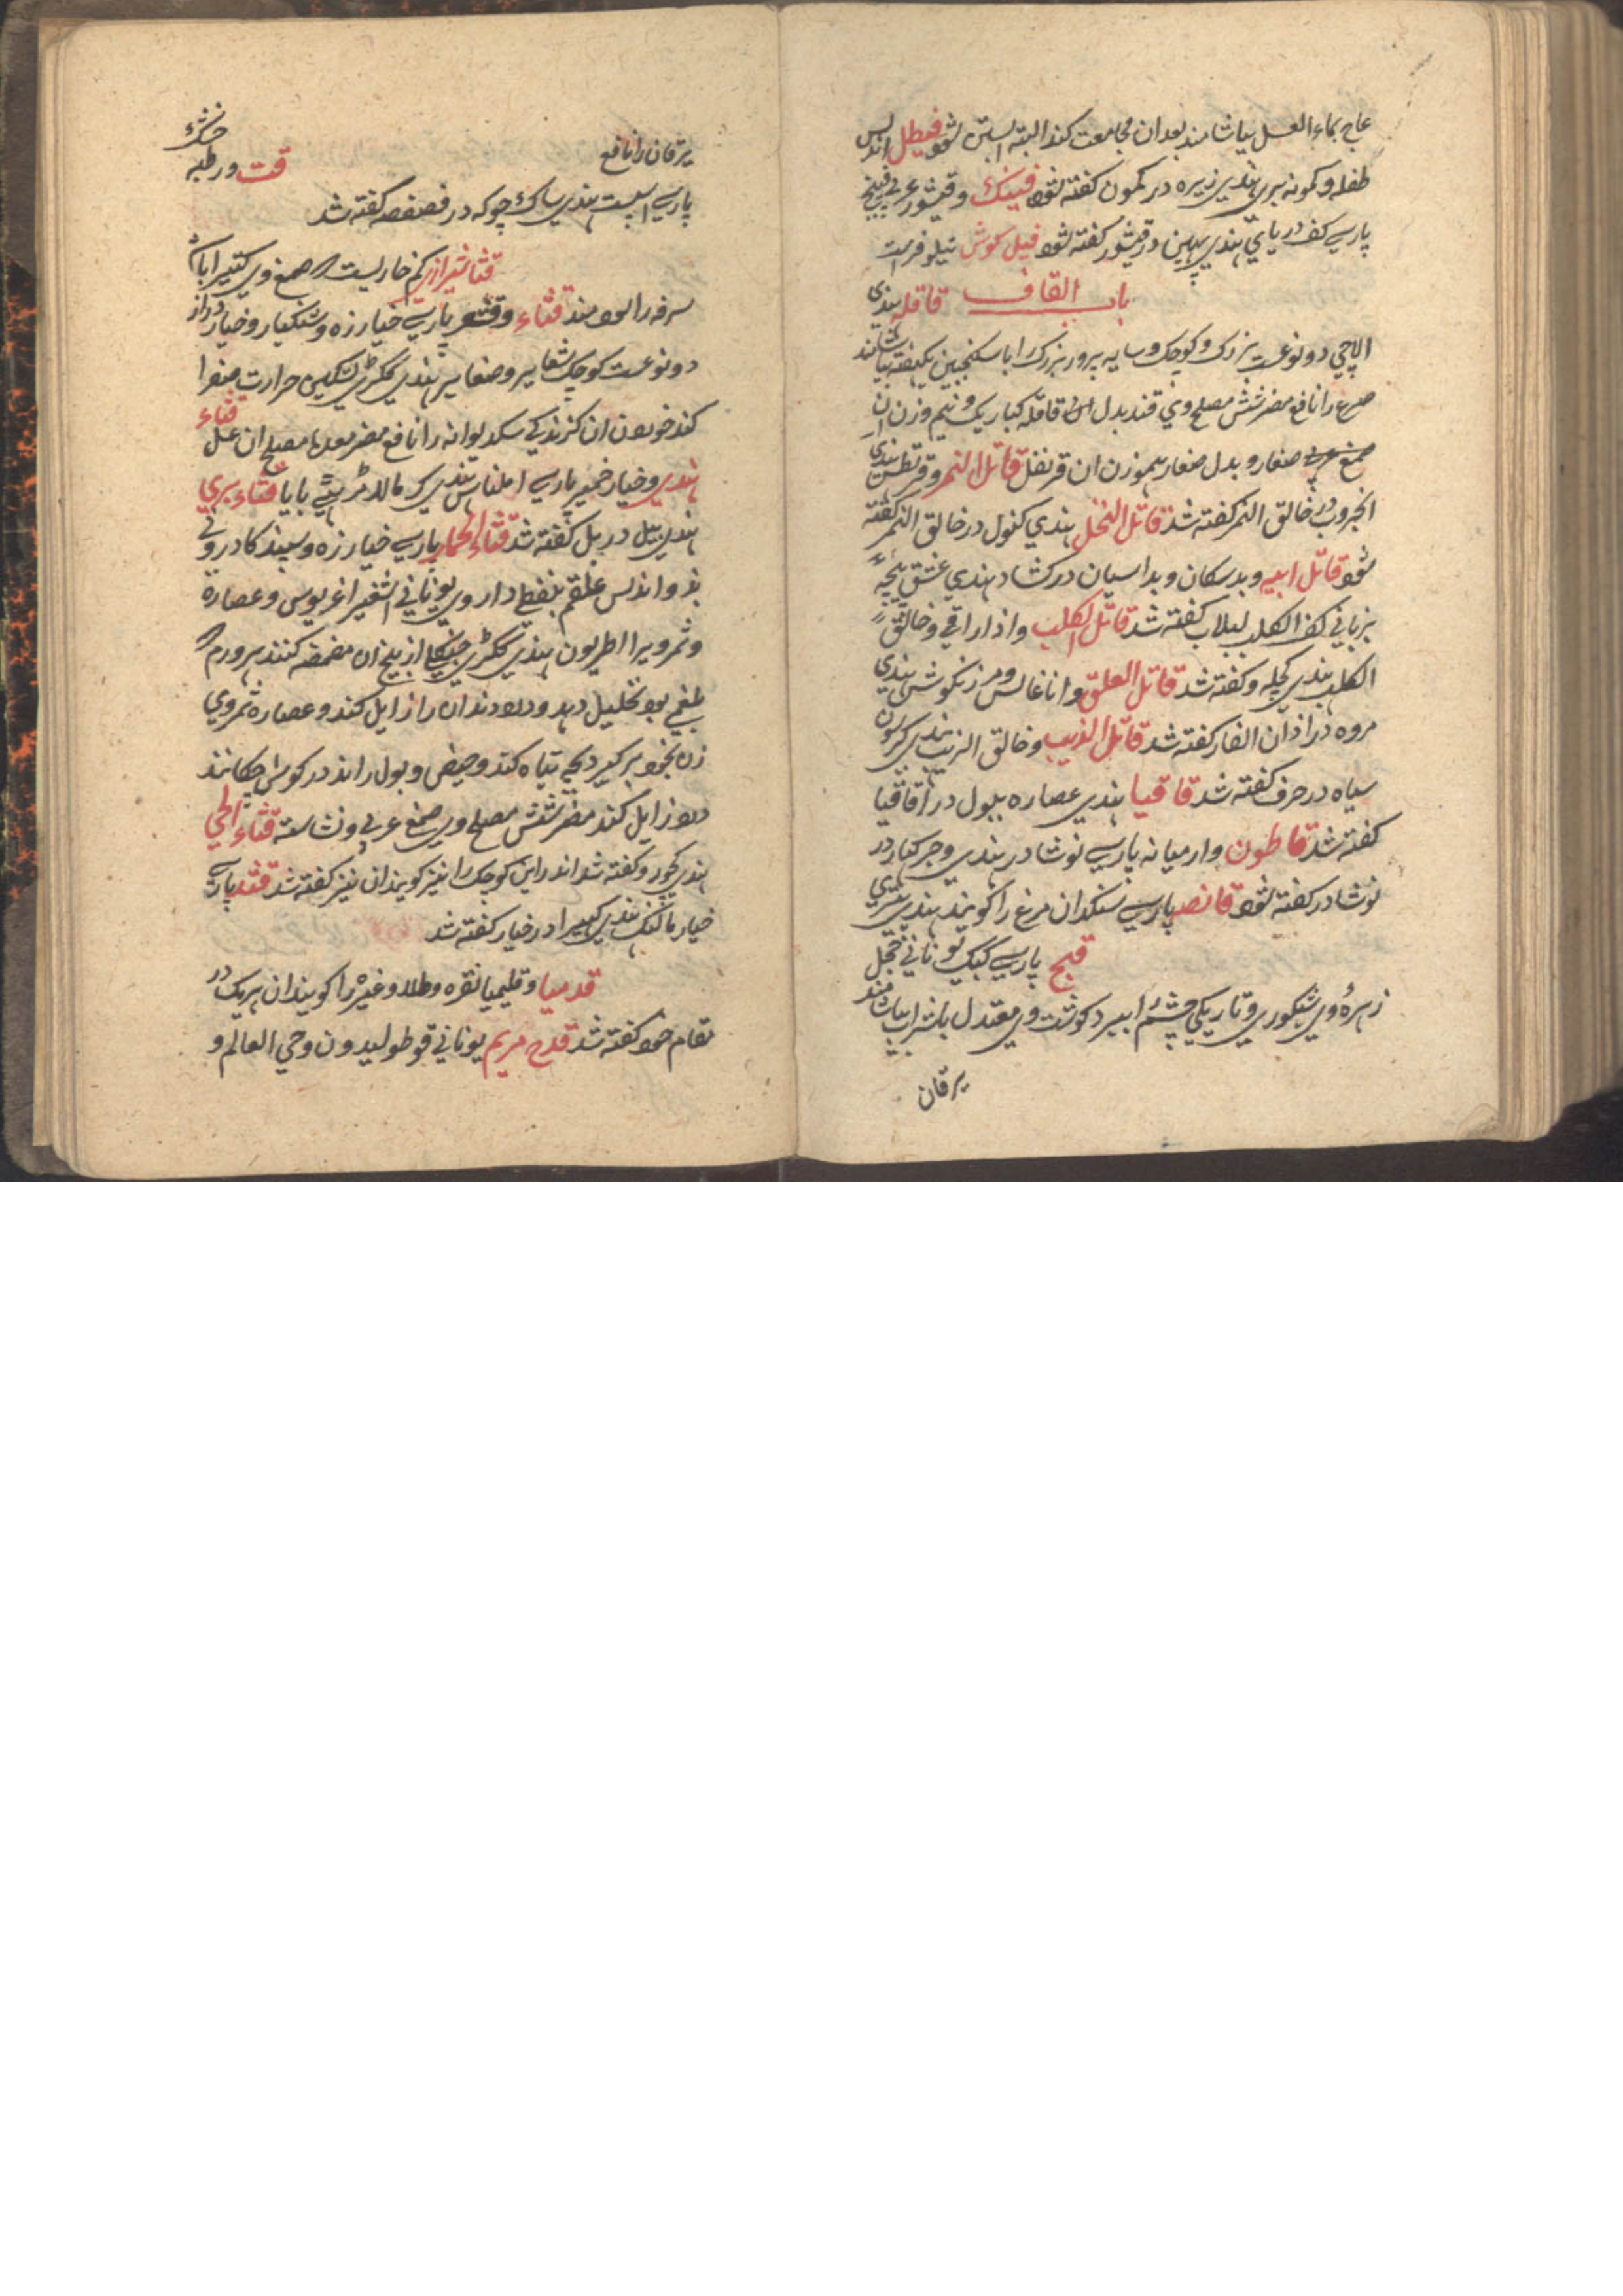 عاج بماء العسل بیاشامند بعد ان مجامعت کند البته ابستن شود فیطل اندلس
طفله و کمونه بری بهندی زیره در کمون کفته شود فینک و قیشور عربی فینج
پارسی کف دریای بهندی پهین در قیشور کفته شود فیل کوش نیلوفرست
باب القاف قاقله بهندی
الاچی دو نوعست بزرک و کوچک و سایه پرور بزرک را با سکنجبین یکهفته بیاشامند
صرع را نافع مضر شش مصلح وی قند بدل ان قاقله کبار یک و نیم وزن ان
صمغ عربی صغار و بدل صغار بهموزن ان قرنفل قاتل النمر و قرنطس بهندی
خالق النمر کفته شد قاتل النحل بهندی کنول در خالق النمر کفته
شود قاتل ابیه و بدسکان و بداسپان در کشاد بهندی عشق پیچه
بزبانی کف الکلب لبلاب کفته شد قاتل الکلب و اذاراقی و خالق
الکلب بهندی کچله و کفته شد قاتل العلق و اناغالس و مرزنکوش بهندی
مروه در اذان الفار کفته شد قاتل الذیب و خالق الذیب بهندی
سیاه در حرف کفته شد قاقیا بهندی عصاره ببول در اقاقیا
کفته شد قاطون و ارمیانه پارسی نوشادر بهندی و جرکبار در
نوشادر کفته شود قانصه پارسی سنکدان مرغ را کویند بهندی
قبج پارسی کبک یونانی حجل
زهرهٔ وی شبکوری و تاریکی چشم را ببرد کوشت وی معتدل باشراب بیاشامند
یرقان
یرقان را نافع
قت و رطبه خشک
پارسی اسپست بهندی ساک چوکه در فصفصه کفته شد
قتاد شیرازی کم خاریست که صمغ وی کتیرا با
سرفه را سودمند قثاء و قثد پارسی خیارزه و شنکیار و خیار دراز
دو نوعست کوچک شعاریر و ضغابیر بهندی ککڑی تسکین حرارت صفرا
کند خوردن ان کزندکی سک دیوانه را نافع مضر معده مصلح ان عسل قثاء
هندی و خیار خمیر پارسی املتاس بهندی کرمالا قثاء بری
بهندی بل در بل کفته شد قثاء الحمار پارسی خیارزه و سپند کا درونی
بذ و اندلس علقم بنفطی داروی یونانی اشفیر اغریوس و عصاره
و ثمر ویرا اطریون بهندی ککڑی جنکلی از بیخ ان مضمضه کنند هر ورم که
بلغمی بود تحلیل دهد و درد دندان را زایل کند و عصاره ثمر وی
زن بخود برکیرد بچه تباه کند و حیض و بول راند در کوش چکانند
درد زایل کند مضر شش مصلح وی صمغ عربی و نشاسته قثاء الحی
بهندی کچور و کفته شد اندراین کوچک را نیز کویند ان نیز کفته شد قثد پارسی
خیار مانک بهندی کهیرا در خیار کفته شد
قدمیا و قلیمیا نقره و طلا و غیره را کویند ان هر یک در
مقام خود کفته شد قدح مریم یونانی قوطولیدون و حی العالم و